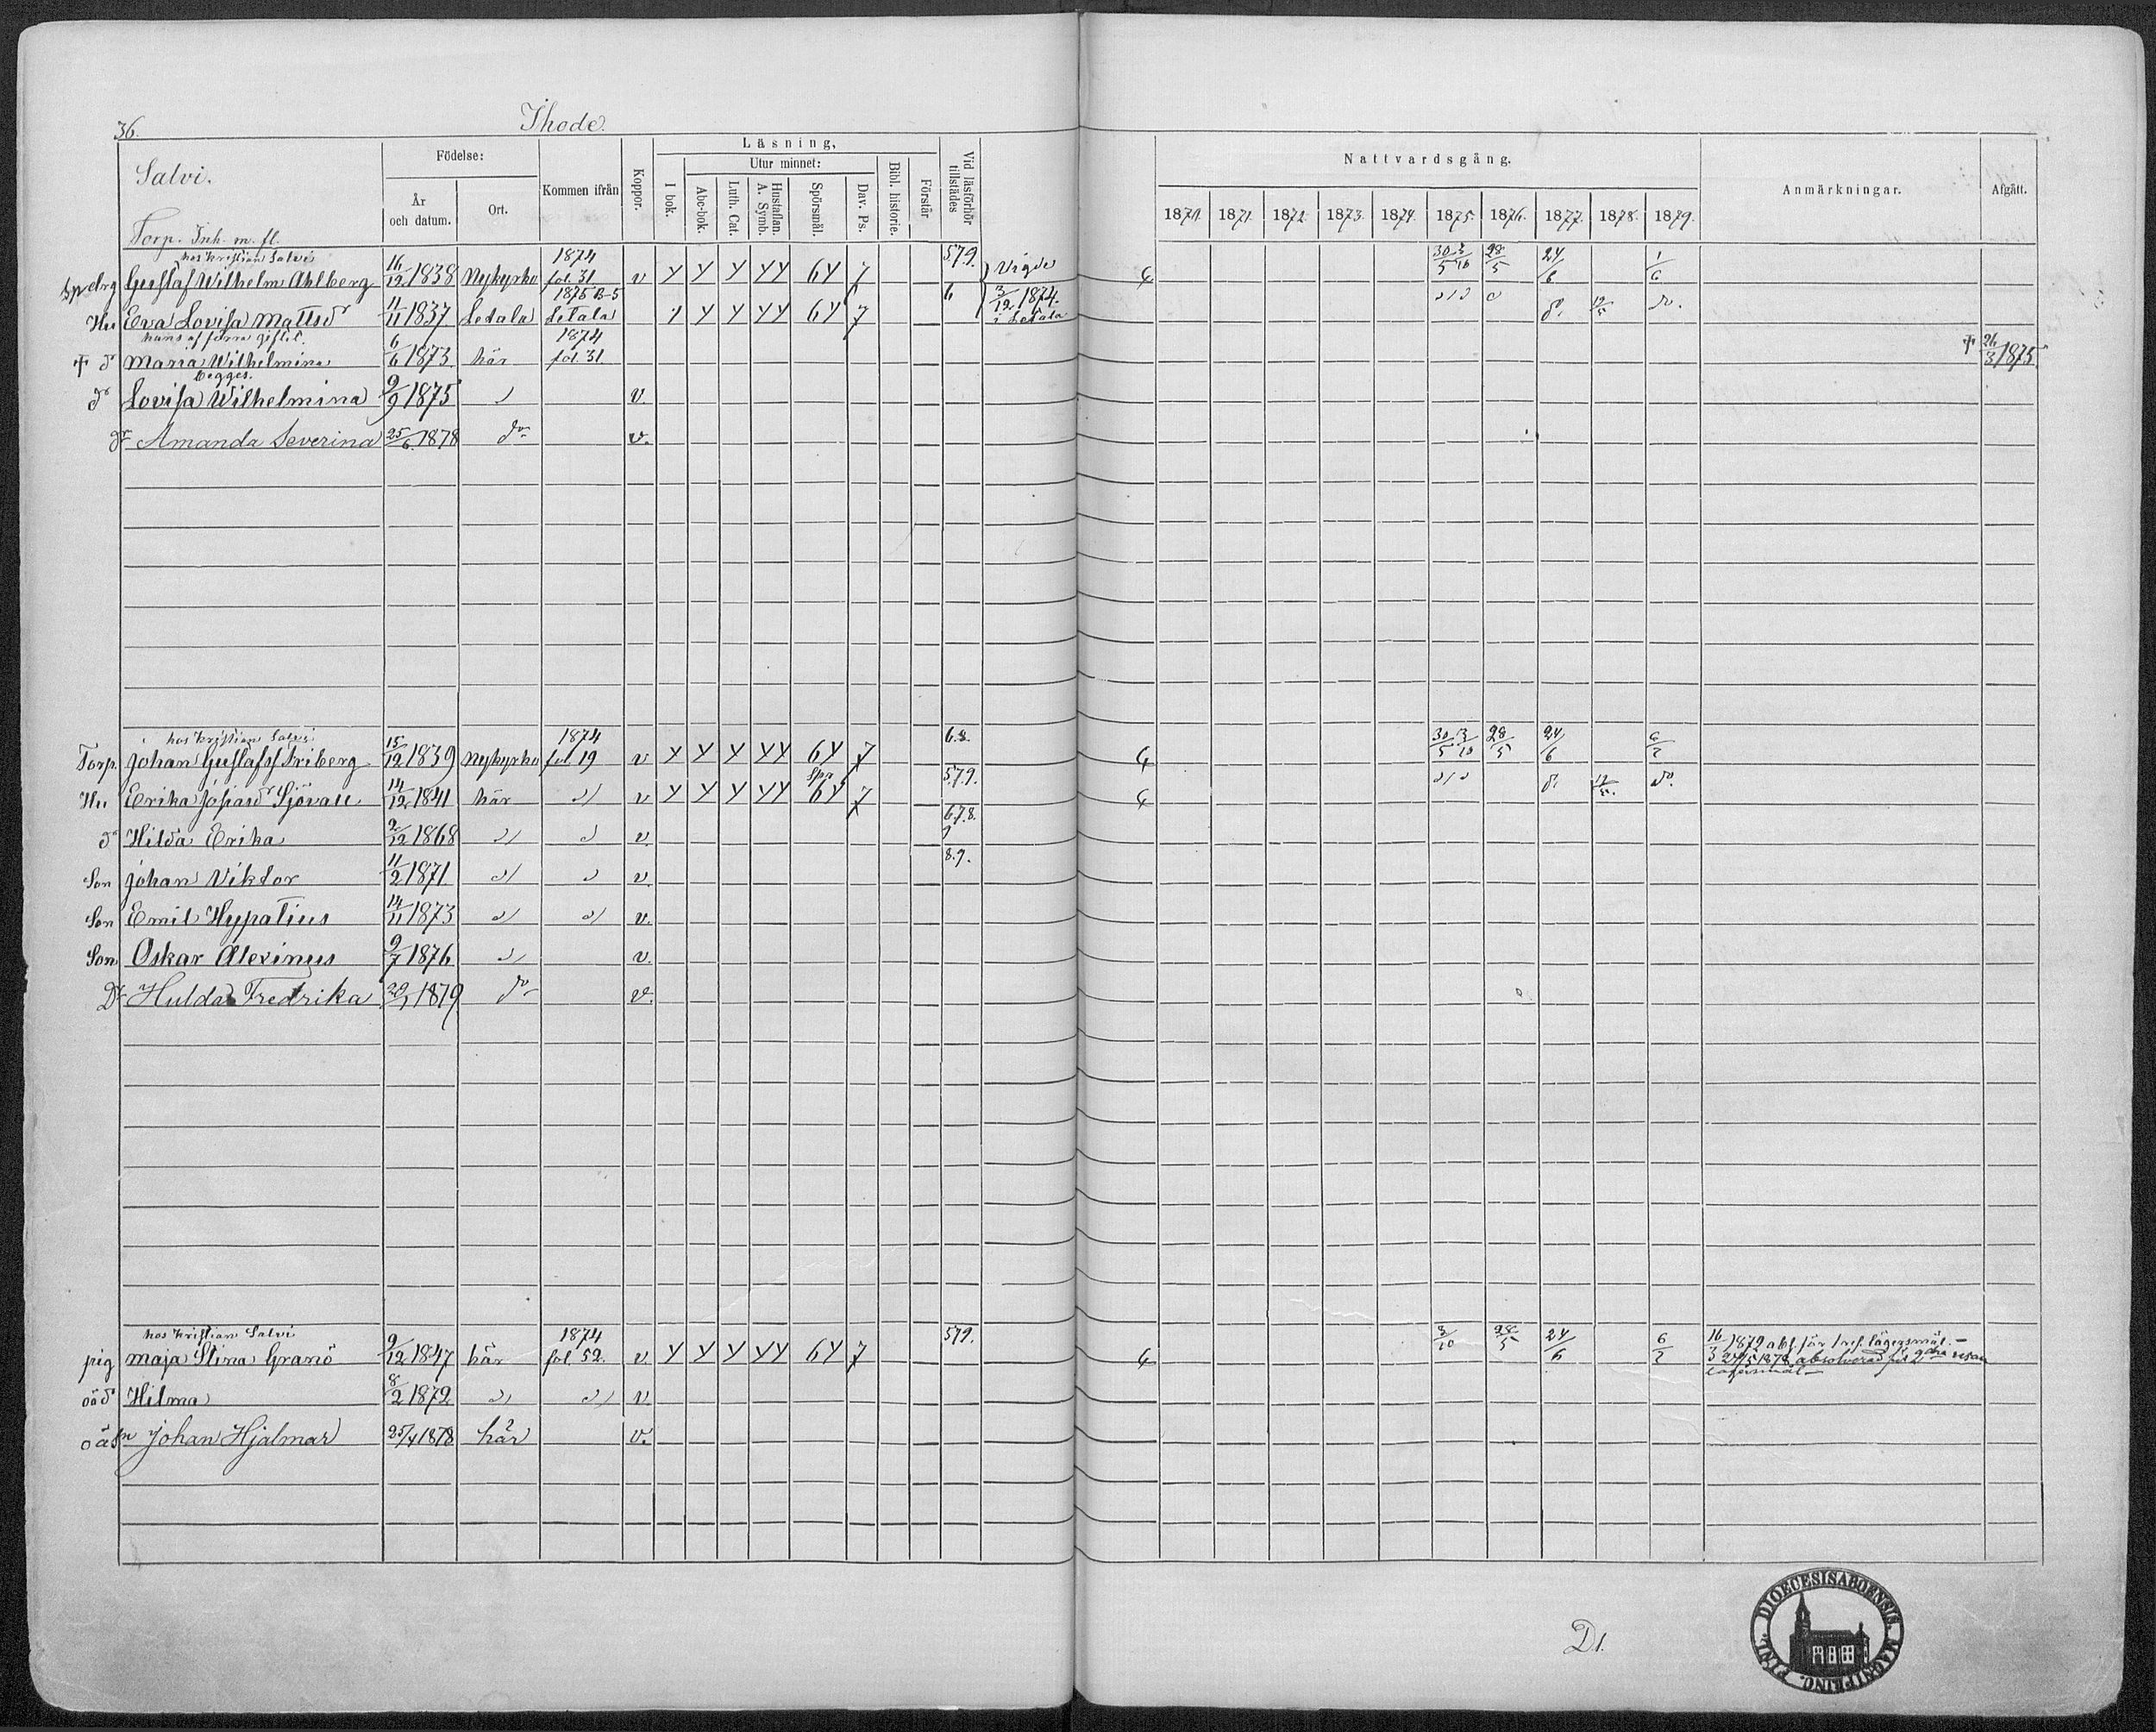 36. Ihode.
Salvi. Födelse: Kommen ifrån Koppor. Läsning, Vid läsförhör tillstädes Nattvardsgång. Anmärkningar. Afgått.
År och datum. Ort. I bok. Utur minnet: Bibl. historie. Förstår
Abc-bok. Luth. Cat. Hustaflan. A. Symb. Spörsmål. Dav. Ps.
1870. 1871. 1872. 1873. 1874. 1875. 1876. 1877. 1878. 1879.
Torp. Inh. m. fl.
hos Kristian Salvi 1874 5.7.9. 30/5 3/10 28/5 24/6 1/6
Gustaf Wilhelm Ahlberg 16/12 1838 Nykyrko fol. 31 v Y Y Y YY 6Y 7 Vigde
1875 B-5 6 3/12 1874
Hu Eva Lovisa Mattsdr 11/11 1837 Letala Letala Y Y Y YY 6Y 7 i Letala
hans af förra giftet. 1874
† dr Maria Wilhelmina 6/6 1873 här fol. 31 † 26/3 1875
Begges.
dr Lovisa Wilhelmina 9/9 1875 v.
dr Amanda Severina 25/6 1878 do v.
hos Kristian Salvi 1874 6.8. 30/5 3/10 28/5 24/6 6/7
Torp. Johan Gustafss Friberg 15/12 1839 Nykyrko fol 19 v Y Y Y YY 6Y 7
5.7.9.
Hu Erika Josefsdr Sjövall 14/12 1841 här v Y Y Y YY 6Y 7
6.7.8.
dr Hilda Erika 2/12 1868 v. 9
8.9.
Son Johan Viktor 11/2 1871 v.
Son Emil Hypatius 14/11 1873 v.
Son Oskar Alexinus 9/7 1876 v.
Dr Hulda Fredrika 1879 do v.
hos Kristian Salvi 1874 5.7.9. 3/10 28/5 24/6 6/7
pig Maja Stina Granö 9/12 1847 här fol 52. v Y Y Y YY 6Y 7 16/3 1872 abs. för lägersmål.
1878 absolverad för 2dra resan
oäd Hilma 8/2 1872 v lägersmål
oäsn Johan Hjalmar 25/4 1878 här v.
D1.
DIOECESIS ABOENSIS. MAGNI PRINC. FINL.